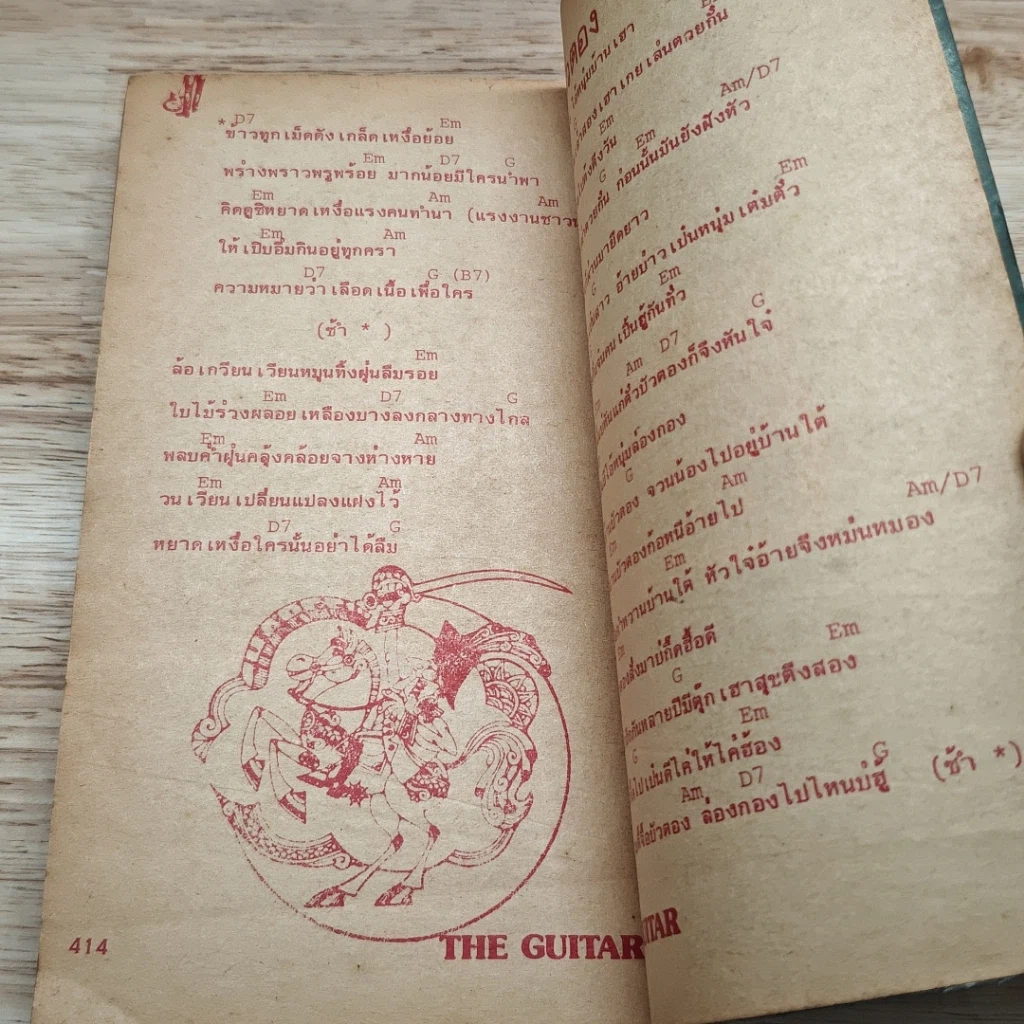 * D7 Em
ข้าวทุกเม็ดดังเกล็ดเหงื่อย้อย
Em D7 G
พร่ำงพราวพรูพร้อย มากน้อยมีใครนำพา
Em Am Am
คิดดูซิหยาดเหงื่อแรงคนทำนา (แรงงานชาว
Em Am
ให้เปิบอิ่มกินอยู่ทุกครา
D7 G (B7)
ความหมายว่าเลือดเนื้อเพื่อใคร
(ซ้ำ * )
Em
ล้อเกวียนเวียนหมุนทิ้งฝุ่นลืมรอย
Em D7 G
ใบไม้ร่วงผล่อยเหลืองบางลงกลางทางไกล
Em Am
พลบค่ำฝุ่นคลุ้งคล้อยจางห่างหาย
Em Am
วนเวียนเปลี่ยนแปลงแฝงไว้
D7 G
หยาดเหงื่อใครนั้นอย่าได้ลืม
414
THE GUITAR
หนุ่มบ้านเฮา
สองเฮาเกยเล่นตวยกั๋น
Em Am/D7
G Em
ตวยกั๋น ก่อนนั้นมันยังฝังหัว
Em
ผ่านมายืดยาว
G Em
สาว อ้ายบ่าวเป๋นหนุ่มเต๋มตั๋ว
G
คนเปิ้นฮู้กันทั่ว
Am D7
บัวตองก็จึงหันใจ๋
หนุ่มล่องกอง
G Am
บัวตอง จวนน้องไปอยู่บ้านใต้
Am/D7
บัวตองก้อหนีอ้ายไป
Em
หวานบ้านใต้ หัวใจ๋อ้ายจึงหม่นหมอง
Em
สั่งมาย่กึ๊ดฮื้อดี
G
กันหลายปีมีตุ้ก เฮาสุขตึงสอง
G Em
ไปเป๋นดีไค่ไห้ไค่ฮ้อง
Am D7 G
บัวตอง ล่องกองไปไหนบ่ฮู้ (ซ้ำ *)
ITAR